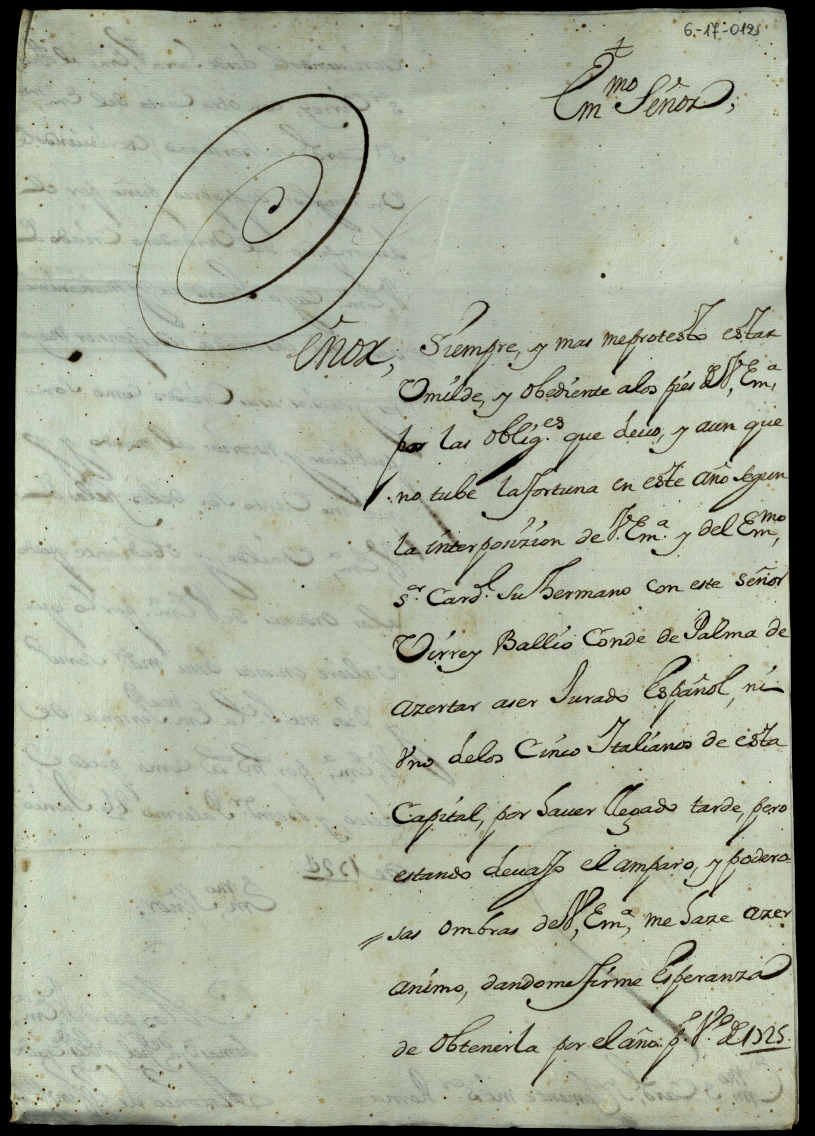 6-17-0121
Em.mo Señor,
Señor, Siempre, y mas me protesto estar
Umilde, y obediente a los pies de V. Em.a,
por las oblig.es que deuo, y aun que
no tube la fortuna en este año segun
la interposizion de V. Em.a y del Em.mo,
s.r Card.l su hermano con este señor
Virrey Ballio Conde de Palma de
azertar aser Jurado Español, ni
Vno delos Cinco Italianos de esta
Capital, por hauer llegado tarde, pero
estando deuajo el amparo, y podero-
sas ombras de V. Em.a, me haze azer
animo, dandome firme Esperanza
de obtenerla por el año p.o V.o de 1725.
Em.mo s.r Card.l Cienfuentes mi s.r Roma